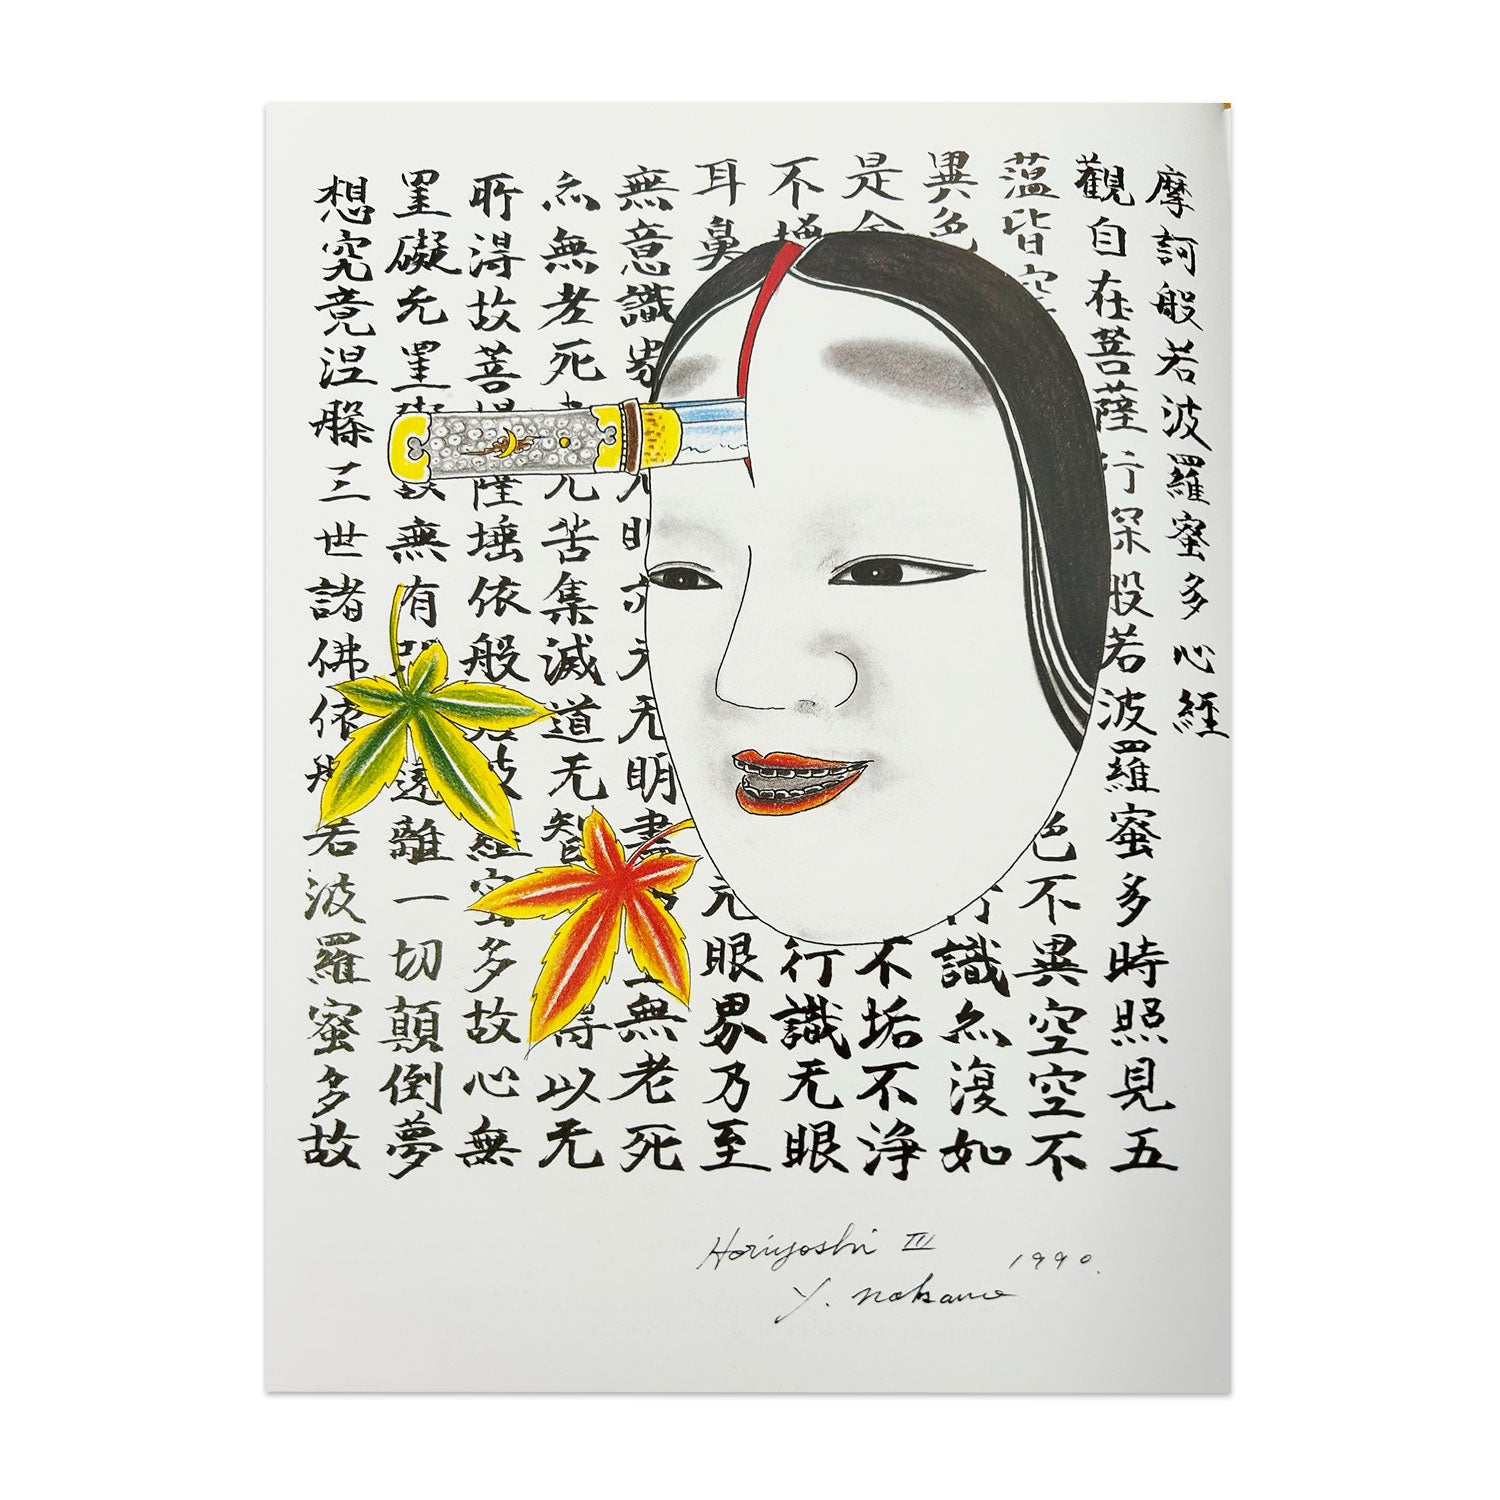 摩訶般若波羅蜜多心經
觀自在菩薩行深般若波羅蜜多時照見五
薀皆空 色不異空空不
異色 行識亦復如
是舍 不垢不浄
不増 行識无眼
耳鼻 无眼界乃至
無意識界 无明亦无无明盡 無老死
亦無老死 无苦集滅道无智 得以无
所得故菩提薩埵依般若波羅蜜多故心無
罣礙无罣礙故無有 遠離一切顛倒夢
想究竟涅槃三世諸佛依般若波羅蜜多故
Horiyoshi III 1990.
Y. Nakano